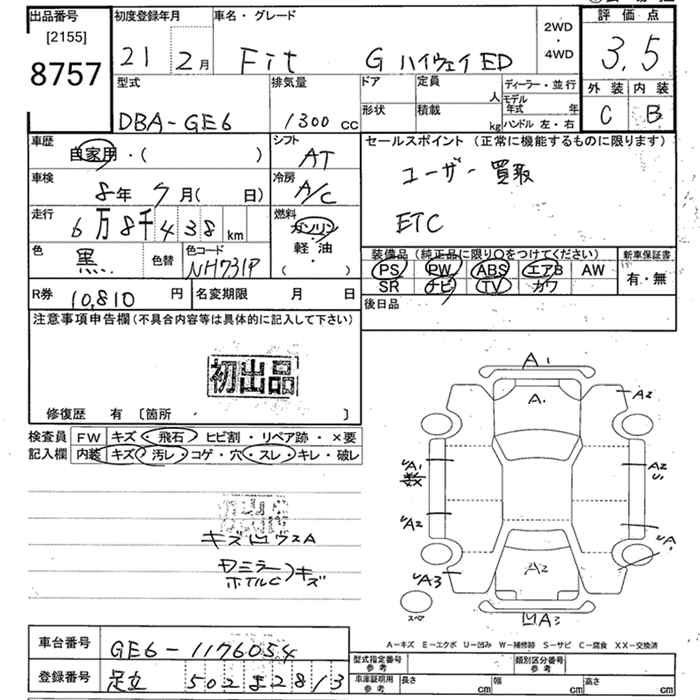 出品番号
[2155]
8757
初度登録年月
21 2月
車名・グレード
Fit G ハイウェイED
2WD
・
4WD
評価点
3.5
外装 内装
C B
型式
DBA-GE6
排気量
1300 cc
ドア
形状
定員
人
積載
kg
ディーラー・並行
モデル年式 年
ハンドル 左・右
車歴
自家用・( )
シフト
AT
車検
8年 7月( 日)
冷房
A/C
走行
6万8千438 km
燃料
ガソリン
軽油
( )
色
黒
色替
色コード
NH731P
R券 10,810 円
名変期限 月 日
セールスポイント(正常に機能するものに限ります)
ユーザー買取
ETC
装備品(純正品に限り○をつけてください)
PS PW ABS エアB AW
SR ナビ TV カワ
新車保証書
有・無
後日品
注意事項申告欄(不具合内容等は具体的に記入して下さい)
初出品
修復歴 有 〔箇所 〕
検査員 FW キズ・飛石・ヒビ割・リペア跡・×要
記入欄 内装 キズ・汚レ・コゲ・穴・スレ・キレ・破レ
初出品
キズ凹ウスA
ホイルC キズ
A1
A
A2
A2
U
A1
A2
A3
A2
A3
スペア
車台番号 GE6-1176054
登録番号 足立 502
A-キズ E-エクボ U-凹み W-補修跡 S-サビ C-腐食 XX-交換済
型式指定番号
参考
類別区分番号
参考
車庫証明用
参考
長さ cm 幅 cm 高さ cm